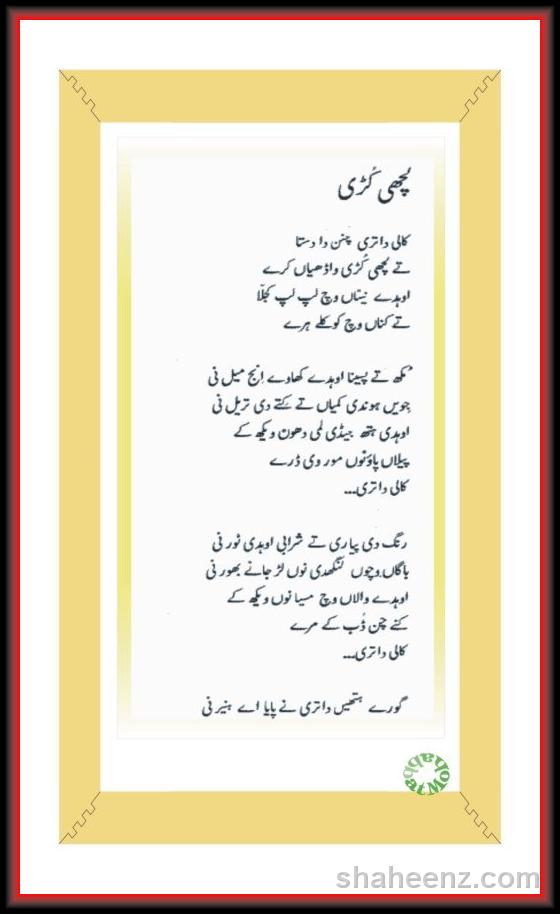 لُچھی کُڑی
کالی داتری چنن دا دستا
تے لچھی کُڑی واڈھیاں کرے
اوہدے نیناں وچ لپ لپ کجلّا
تے کناں وچ کوکلے ہرے
مُکھ تے پسینا اوہدے کھاوے اِنج میل نی
جویں ہوندی کمیاں تے کتے دی تریل نی
اوہدی ہتھ جیڈی لمی دھون ویکھ کے
پیلاں پاؤنوں مور وی ڈرے
کالی داتری...
رنگ دی پیاری تے شرابی اوہدی ٹور نی
باگاں وچوں لنگھدی نوں لڑ جانے بھور نی
اوہدے والاں وچ مسیا نوں ویکھ کے
کئے چن ڈُب کے مرے
کالی داتری...
گورے ہتھیں داتری نے پایا اے ہنیر نی
shaheenz.com